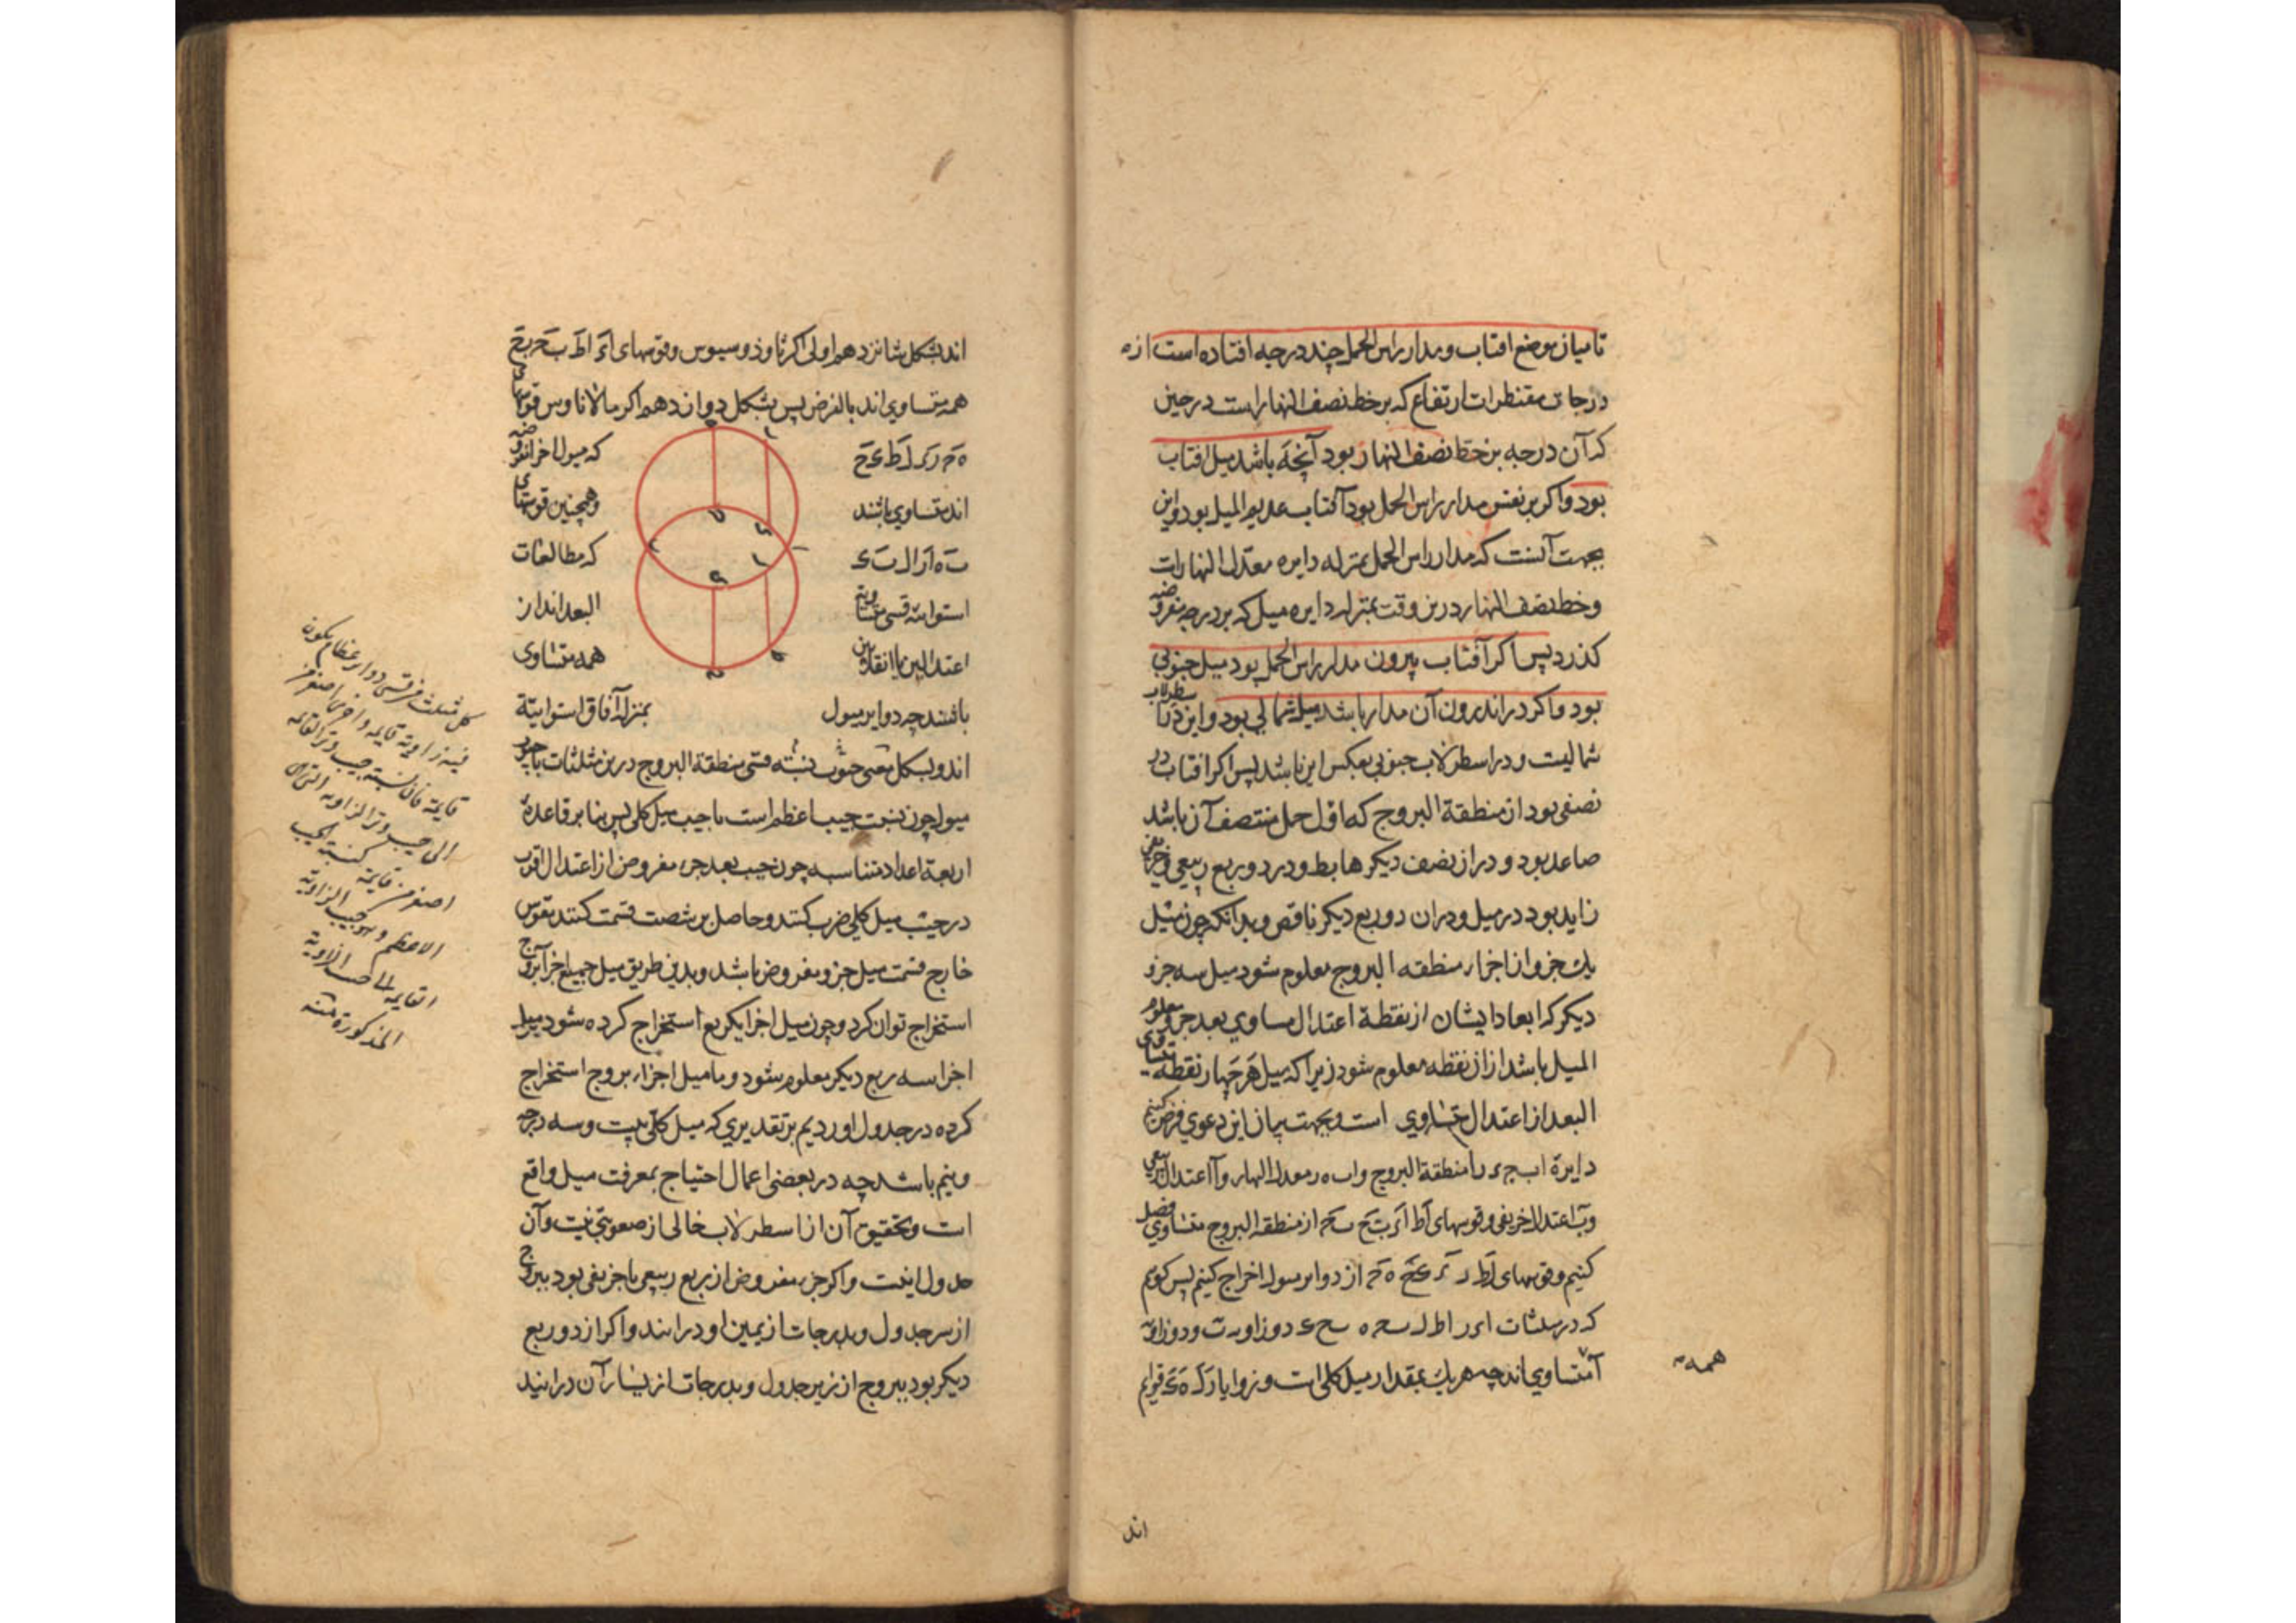 تا میان موضع افتاب و مدار راس الحمل چند درجه افتاده است از
درجات مقنطرات ارتفاع که بر خط نصف النهار است در حین
که آن درجه بر خط نصف النهار بود آنچه باشد میل افتاب
بود و اکر بر نفس مدار راس الحمل بود آفتاب عدیم المیل بود و این
بجهت آنست که مدار راس الحمل بمنزله دایره معدل النهار است
و خط نصف النهار درین وقت بمنزله دایره میل که بر درجه مفروضه
کذرد پس اکر آفتاب بیرون مدار راس الحمل بود میل جنوبی
بود و اکر در اندرون آن مدار باشد میل شمالی بود و این در اسطرلاب
شمالیست و در اسطرلاب جنوبی بعکس این باشد پس اکر افتاب در
نصفی بود از منطقة البروج که اول حمل منتصف آن باشد
صاعد بود و در ان نصف دیکر هابط و در دو ربع ربیعی و خریفی
زاید بود در میل و در ان دو ربع دیکر ناقص و بدانکه چون میل
یک جزو از اجزاء منطقه البروج معلوم شود میل سه جزو
دیکر که ابعاد ایشان از نقطة اعتدال مساوی بعد جزو معلوم
المیل باشد از ان نقطه معلوم شود زیرا که میل هر چهار نقطه متساوی
البعد از اعتدال متساوی است و بجهت بیان این دعوی فرض کنیم
دایرة ا ب ج د را منطقة البروج و ا ب ه ر معدل النهار و آ اعتدال ربیعی
و ب اعتدال خریفی و قوسهای از منطقه البروج متساوی فصل
کنیم و قوسهای از دوایر میول اخراج کنیم پس کوییم
که در مثلثات دو زاویه ب و دو زاویه
آ متساوی اند چه هر یک بمقدار میل کلی است و زوایا قوایم
همه
اند
اند بشکل شانزدهم اولی اکر ثاوذوسیوس و قوسهای
همه متساوی اند بالفرض پس بشکل دوازدهم اکر مالاناوس قوسهای
که میول اجزا مفروضه
اند متساوی باشند و همچنین قوسهای
که مطالعات
استوائیة قسی متساویة البعد اند از
اعتدالین یا انقلابین همه متساوی
باشند چه دوایر میول بمنزله آفاق استوائیة
اند و بشکل مغنی جیوب نسبة قسی منطقة البروج درین مثلثات با جیوب
میول چون نسبت جیب اعظم است با جیب میل کلی پس بنا بر قاعدهٔ
اربعة اعداد متناسبه چون جیب بعد جزء مفروض از اعتدال اقرب
در جیب میل کلی ضرب کنند و حاصل بر شصت قسمت کنند قوس
خارج قسمت میل جزو مفروض باشد و بدین طریق میل جمیع اجزا بروج
استخراج توان کرد و چون میل اجزا یکربع استخراج کرده شود میل
اجزا سه ربع دیکر معلوم شود و ما میل اجزاء بروج استخراج
کرده در جدول اوردیم بر تقدیری که میل کلی بیست و سه درجه
و نیم باشد چه در بعضی اعمال احتیاج بمعرفت میل واقع
است و تحقیق آن از اسطرلاب خالی از صعوبتی نیست و آن
جدول اینست و اکر جزء مفروض از ربع ربیعی یا خریفی بود ببروج
از سر جدول و بدرجات از یمین او در ایند و اکر از دو ربع
دیکر بود ببروج از زیر جدول و بدرجات از یسار آن در ایند
کل مثلث من قسی دوایر عظام یکون
فیه زاویة قایمة و اخری اصغر من
قایمة فان نسبة جیب وتر القائمة
الی جیب وتر الزاویة التی هی
اصغر من قایمة کنسبة الجیب
الاعظم و هو جیب الزاویة
القایمة الی جیب الزاویة
المذکورة منه